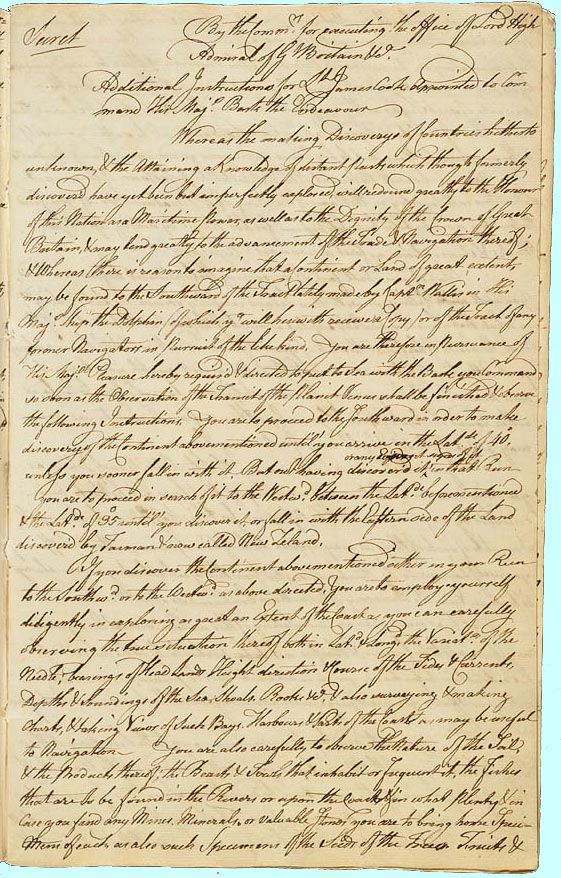 Secret
By the Comm.rs for executing the office of Lord High
Admiral of G.t Britain &c.a
Additional Instructions for L.t James Cook, appointed to Com
mand His Maj.s Bark the Endeavour
Whereas the making Discoverys of Countries hitherto
unknown, & the Attaining a Knowledge of distant Parts which though formerly
discover'd have yet been but imperfectly explored, will redound greatly to the Honour
of this Nation as a Maritime Power, as well as to the Dignity of the Crown of Great
Britain, & may tend greatly to the advancement of the Trade & Navigation thereof;
& Whereas there is reason to imagine that a Continent or Land of great extent,
may be found to the Southward of the Tract lately made by Capt.n Wallis in His
Maj.s Ship the Dolphin (of which you will herewith receive a Copy) or of the Tract of any
former Navigators in Pursuits of the like kind, You are therefore in Pursuance of
His Maj.s Pleasure hereby requir'd & directed to put to Sea with the Bark you Command
so soon as the Observation of the Transit of the Planet Venus shall be finished & observe
the following Instructions. You are to proceed to the Southward in order to make
discovery of the Continent abovementioned until you arrive in the Lat.de of 40.
unless you sooner fall in with it. But not having discover'd it, or any signs of it in that Run
You are to proceed in search of it to the Westw.d between the Lat.de beforementioned
& the Lat.de of 35 until you discover it, or fall in with the Eastern side of the Land
discover'd by Tasman & now called New Zeland.
If you discover the Continent abovementioned either in your Run
to the Southw.d or to the Westw.d as above directed, You are to employ yourself
diligently in exploring as great an Extent of the Coast as you can carefully
observing the true situation thereof both in Lat.de & Long.de the Variat.n of the
Needle, bearings of Head Lands Height direction & Course of the Tides & Currents,
Depths & Soundings of the Sea, Shoals, Rocks &c.a & also surveying & making
Charts, & taking Views of such Bays, Harbours & Parts of the Coast as may be useful
to Navigation. You are also carefully to observe the Nature of the Soil,
& the Products thereof; the Beasts & Fowls that inhabit or frequent it, the Fishes
that are to be found in the Rivers or upon the Coast & in what Plenty & in
Case you find any Mines, Minerals, or valuable Stones you are to bring home Speci-
mens of each, as also such Specimens of the Seeds of the Trees Fruits &